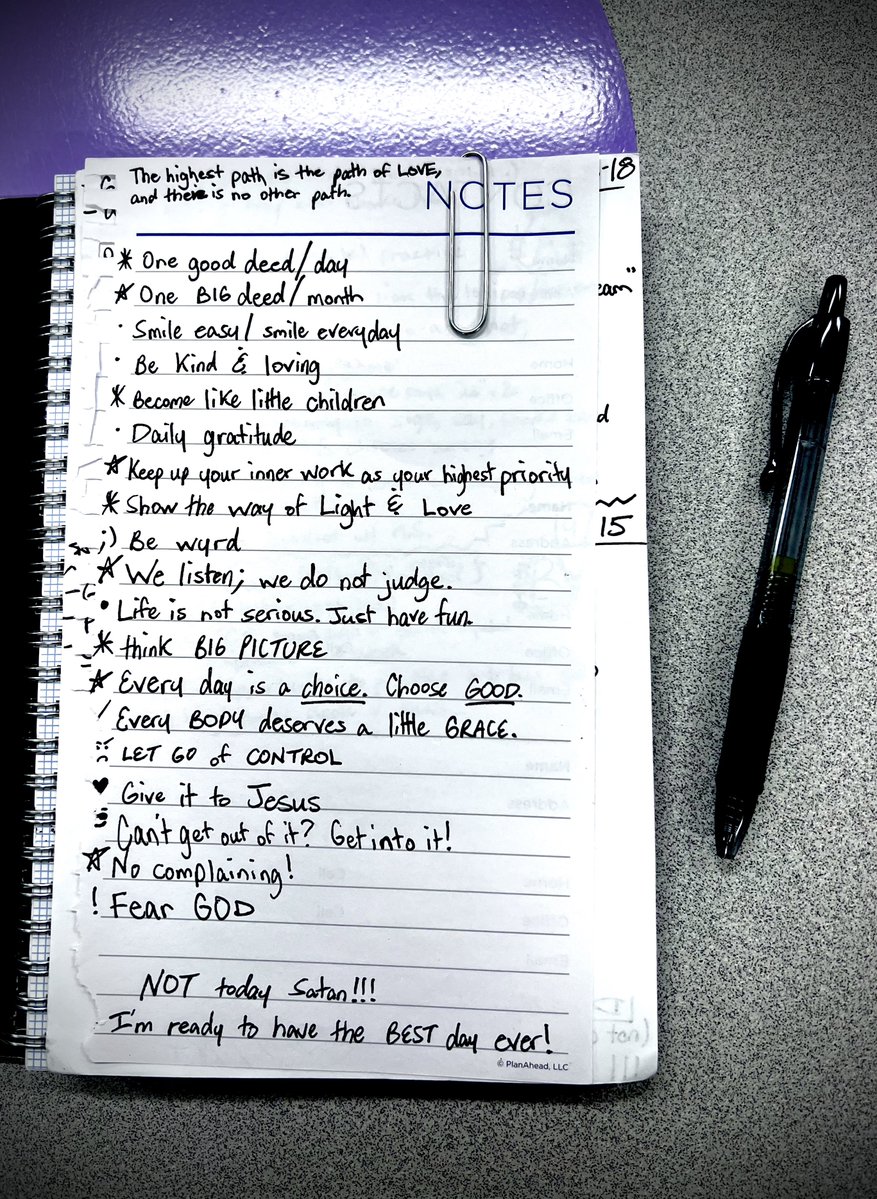 The highest path is the path of LOVE,
and there is no other path.
NOTES
-18
* One good deed/day
☆ One BIG deed/month
· Smile easy/smile everyday
eam"
· Be Kind & loving
* Become like little children
· Daily gratitude
d
☆ Keep up your inner work as your highest priority
* Show the way of Light & Love
15
;) Be wyrd
☆ We listen; we do not judge.
• Life is not serious. Just have fun.
* think BIG PICTURE
☆ Every day is a choice. Choose GOOD.
/ Every BODY deserves a little GRACE.
LET GO of CONTROL
♥ Give it to Jesus
Can't get out of it? Get into it!
☆ No complaining!
! Fear GOD
NOT today Satan!!!
I'm ready to have the BEST day ever!
© PlanAhead, LLC